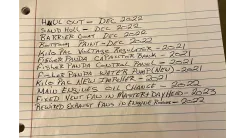 HAUL OUT - DEC 2022
SAND HULL - DEC 2022
BARRIER COAT DEC 2022
BOTTOM PAINT - DEC 2022
KILO PAC VOLTAGE REGULATOR - 2021
FISHER PANDA CAPACITOR BANK - 2021
FISHER PANDA CONTROL PANEL - 2021
FISHER PANDA WATER PUMP (NEW) - 2021
KILO PAC NEW IMPELLER - 2021
MAIN ENGINES OIL CHANGE - 2022
FIXED VENT FAN IN MASTER + DAY HEAD - 2023
REWIRED EXHAUST FANS IN ENGINE ROOM - 2022